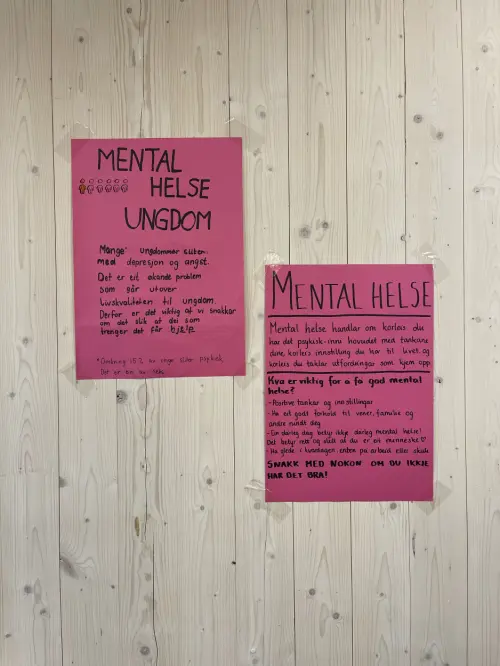 MENTAL
HELSE
UNGDOM
Mange* ungdommar sliten
med depresjon og angst.
Det er eit økande problem
som går utover
Livskvaliteten til ungdom.
Derfor er det viktig at vi snakkar
om det slik at dei som
trenger det får hjelp
*Omkring 15% av unge sliter psykisk
Det er ein av
MENTAL HELSE
Mental helse handlar om korleis du
har det psykisk-inni hovudet med tankane
dine, korleis innstilling du har til livet og
korleis du taklar utfordringar som kjem opp.
Kva er viktig for å få god mental
helse?
-Positive tankar og innstillingar
-Ha eit godt forhold til vener, familie og
andre rundt deg
-Ein dårleg dag betyr ikkje dårleg mental helse!
Det betyr rett og slett at du er eit menneske♡
-Ha glede i kvardagen enten på arbeid eller skule
SNAKK MED NOKON OM DU IKKJE
HAR DET BRA!